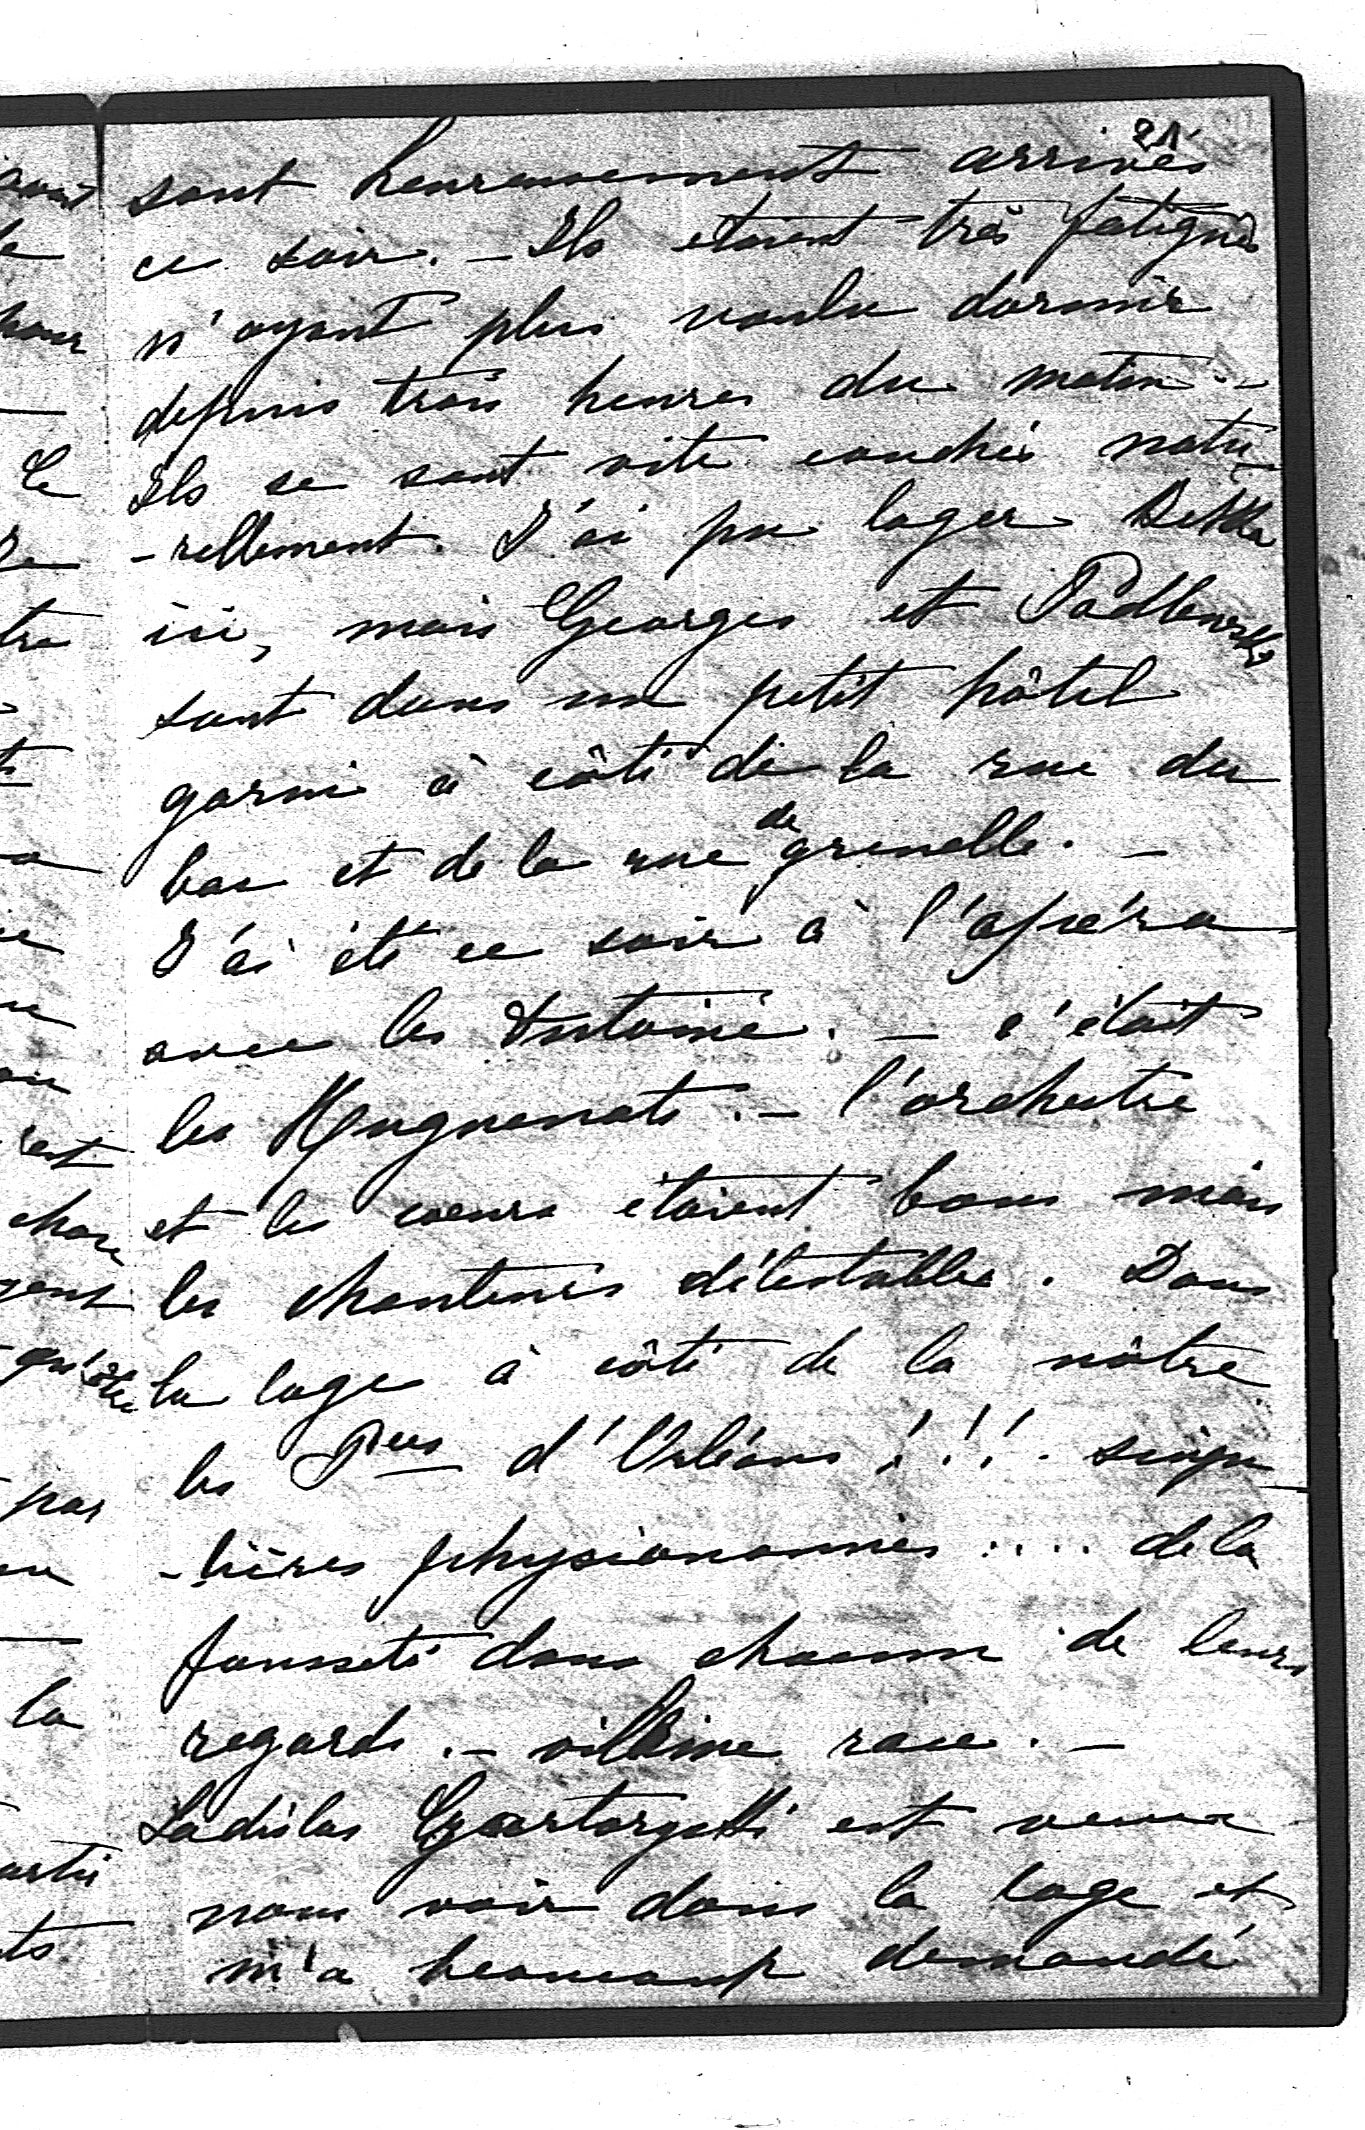 21
sont heureusement arrivés
ce soir. – Ils etaient très fatigués
n'ayant plus voulu dormir
depuis trois heures du matin. –
Ils se sont vite couchés natu-
-rellement. J'ai pu loger
ici, mais Georges et Podhorski
sont dans un petit hôtel
garni à côté de la rue du
bac et de la rue de grenelle. –
J'ai été ce soir à l'opéra
avec les Antoine. – c'était
les Huguenots. – l'orchestre
et les coeurs étaient bons mais
les chanteurs détestables. Dans
la loge à côté de la nôtre
les Pces d'Orléans !!! singu-
-lières physionomies .... de la
fausseté dans chacun de leurs
regards. – vilaine race. –
Ladislas Czartoryski est venu
nous voir dans la loge et
m'a beaucoup demandé